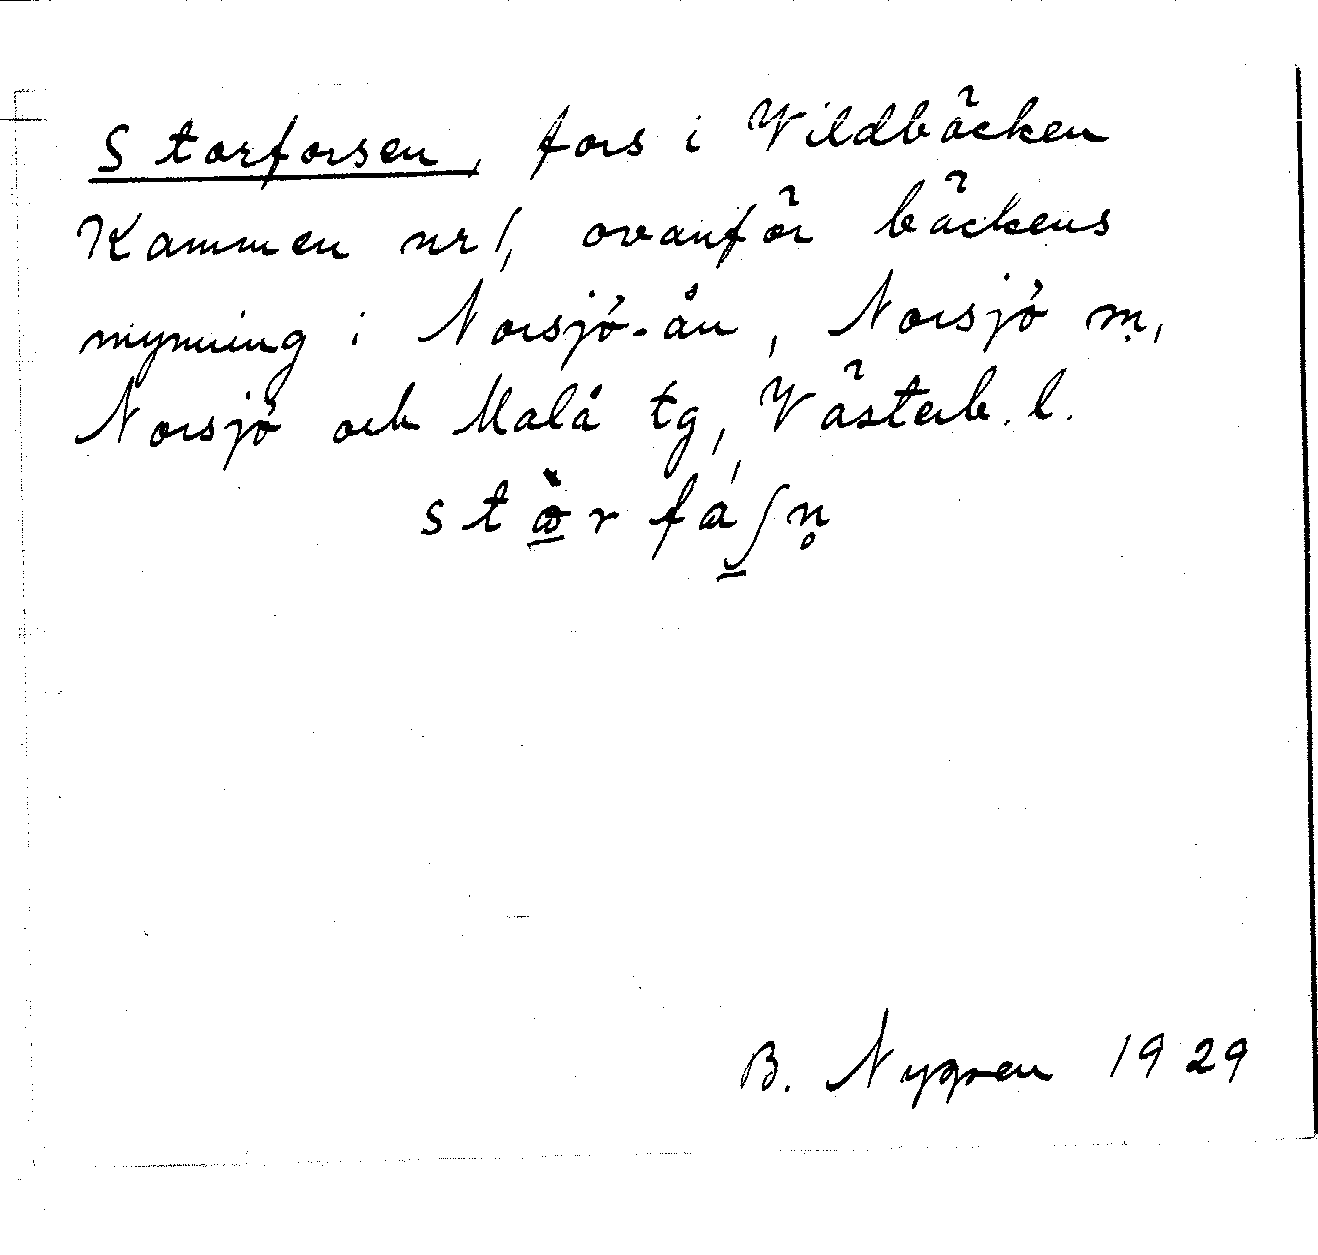 Storforsen, fors i Vildbäcken
Kammen nr 1, ovanför bäckens
mynning i Norsjö-ån, Norsjö m,
Norsjö och Malå tg, Västerb. l.
stὼr fáʃn̥
B. Nygren 1929